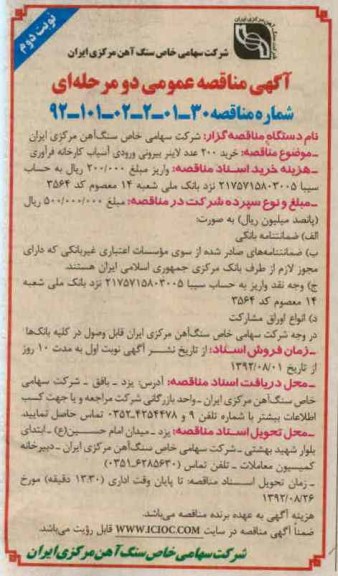 نوبت دوم
شرکت سهامی خاص سنگ آهن مرکزی ایران
آگهی مناقصه عمومی دو مرحله‌ای
شماره مناقصه ۳۰-۰۱-۲-۰۲-۱۰۱-۹۲
نام دستگاه مناقصه گزار: شرکت سهامی خاص سنگ‌آهن مرکزی ایران
ـ موضوع مناقصه: خرید ۲۰۰ عدد لاینر بیرونی ورودی آسیاب کارخانه فرآوری
ـ هزینه خرید اسناد مناقصه: واریز مبلغ ۲۰۰/۰۰۰ ریال به حساب
سیبا ۲۱۷۵۷۱۵۸۰۳۰۰۵ نزد بانک ملی شعبه ۱۴ معصوم کد ۳۵۶۴
ـ مبلغ و نوع سپرده شرکت در مناقصه: مبلغ ۵۰۰/۰۰۰/۰۰۰ ریال
(پانصد میلیون ریال) به صورت:
الف) ضمانتنامه بانکی
ب) ضمانتنامه‌های صادر شده از سوی مؤسسات اعتباری غیربانکی که دارای
مجوز لازم از طرف بانک مرکزی جمهوری اسلامی ایران هستند.
ج) وجه نقد واریز به حساب سیبا ۲۱۷۵۷۱۵۸۰۳۰۰۵ نزد بانک ملی شعبه
۱۴ معصوم کد ۳۵۶۴
د) انواع اوراق مشارکت
در وجه شرکت سهامی خاص سنگ‌آهن مرکزی ایران قابل وصول در کلیه بانک‌ها
ـ زمان فروش اسناد: از تاریخ نشر آگهی نوبت اول به مدت ۱۰ روز
از تاریخ ۱۳۹۲/۰۸/۰۱
ـ محل دریافت اسناد مناقصه: آدرس: یزد ـ بافق ـ شرکت سهامی
خاص سنگ‌آهن مرکزی ایران ـ واحد بازرگانی شرکت مراجعه و یا جهت کسب
اطلاعات بیشتر با شماره تلفن ۹ و ۴۲۵۴۴۷۸-۰۳۵۲ تماس حاصل نمایید.
ـ محل تحویل اسناد مناقصه: یزد ـ میدان امام حسین(ع) ـ ابتدای
بلوار شهید بهشتی ـ شرکت سهامی خاص سنگ‌آهن مرکزی ایران ـ دبیرخانه
کمیسیون معاملات ـ تلفن تماس (۶۲۸۵۶۳۰-۰۳۵۱)
ـ زمان تحویل اسناد مناقصه: تا پایان وقت اداری (۱۳:۳۰ دقیقه) مورخ
۱۳۹۲/۰۸/۲۶
هزینه آگهی به عهده برنده مناقصه می‌باشد.
ضمناً آگهی مناقصه در سایت WWW.ICIOC.COM قابل رؤیت می‌باشد.
شرکت سهامی خاص سنگ آهن مرکزی ایران